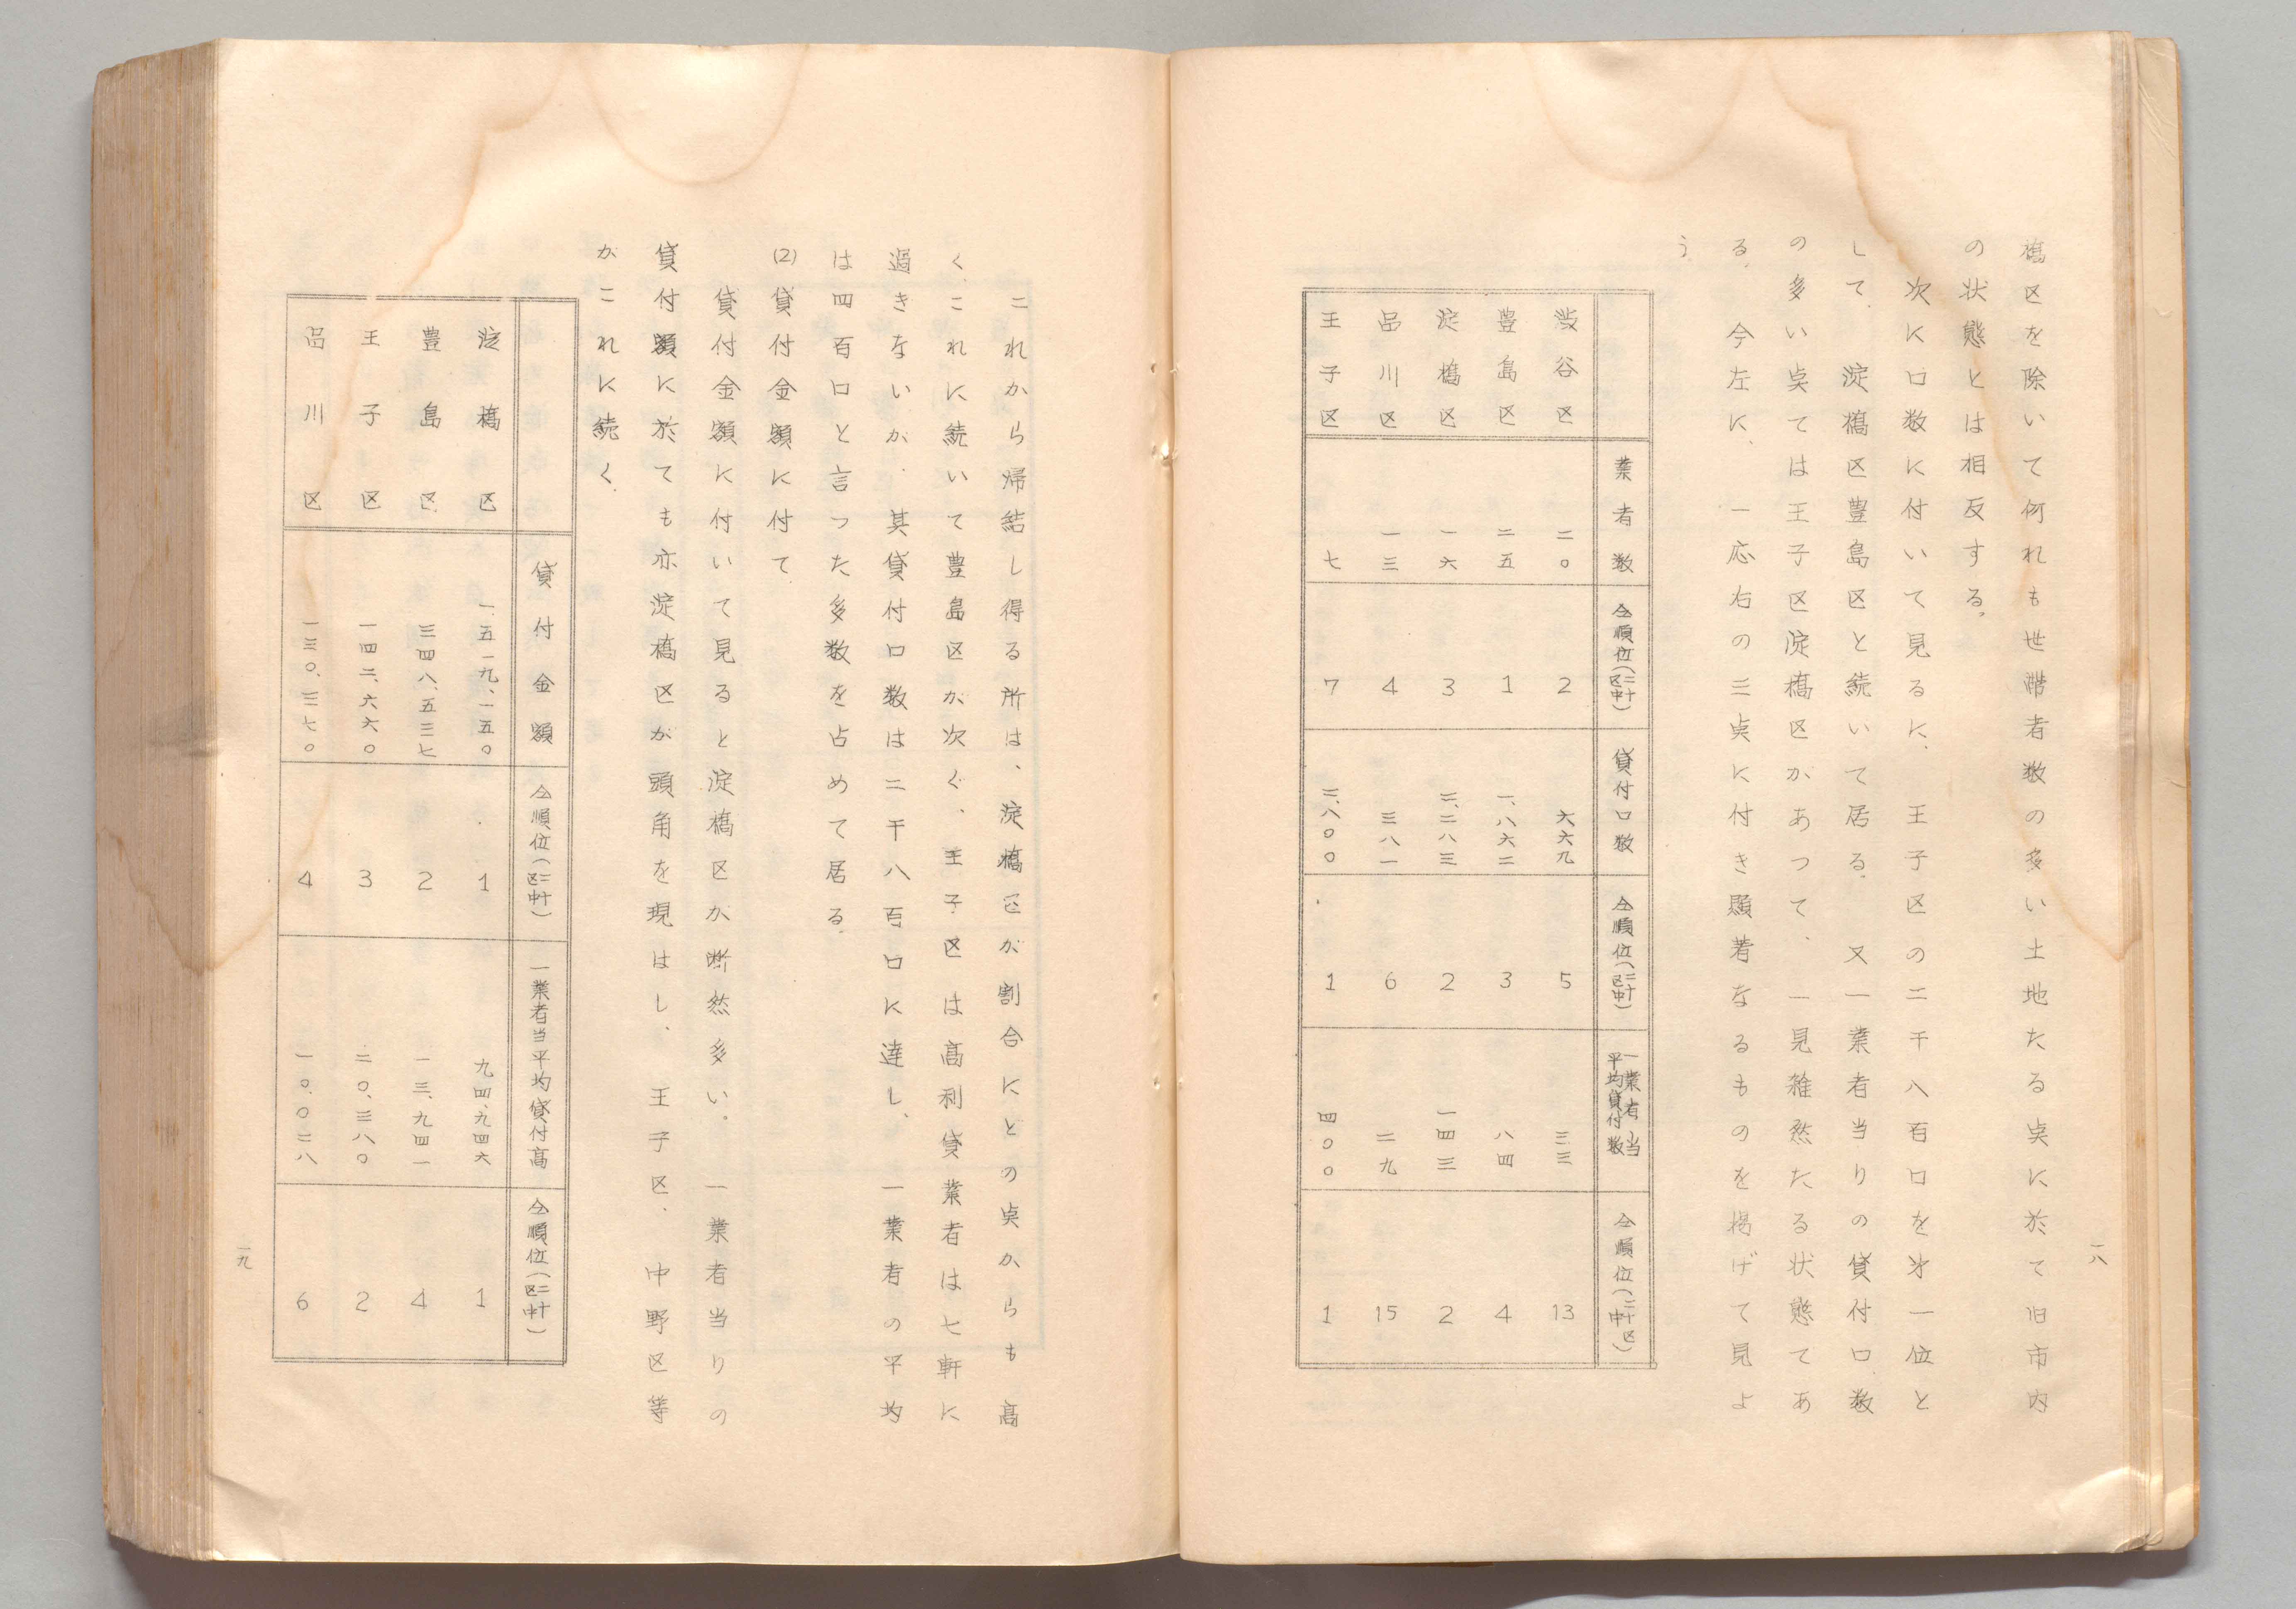 橋区を除いて何れも世帯者数の多い土地たる実に於て旧市内
の状態とは相反する。
次に口数に付いて見るに、王子区の二千八百口を才一位と
して、淀橋区豊島区と続いて居る。又一業者当りの貸付口数
の多い実ては王子区淀橋区があつて、一見雑然たる状態てあ
る。今左に、一応右の三実に付き顕著なるものを掲げて見よ
う。
業者数 仝順位(二十区中) 貸付口数 仝順位(二十区中) 一業者当平均貸付数 仝順位(二十区中)
渋谷区 二〇 2 六六九 5 三三 13
豊島区 二五 1 一、八六二 3 八四 4
淀橋区 一六 3 二、二八三 2 一四三 2
品川区 一三 4 三八一 6 二九 15
王子区 七 7 二、八〇〇 1 四〇〇 1
一八
これから帰結し得る所は、淀橋区が割合にとの実からも高
く、これに続いて豊島区が次ぐ、王子区は高利貸業者は七軒に
過きないが、其貸付口数は二千八百口に達し、一業者の平均
は四百口と言つた多数を占めて居る。
(2)貸付金額に付て
貸付金額に付いて見ると淀橋区が断然多い。一業者当りの
貸付額に於ても亦淀橋区が頭角を現はし、王子区、中野区等
がこれに続く。
貸付金額 仝順位(二十区中) 一業者当平均貸付高 仝順位(二十区中)
淀橋区 一、五一九、一五〇 1 九四、九四六 1
豊島区 三四八、五三七 2 一三、九四一 4
王子区 一四二、六六〇 3 二〇、三八〇 2
品川区 一三〇、三七〇 4 一〇、〇二八 6
一九